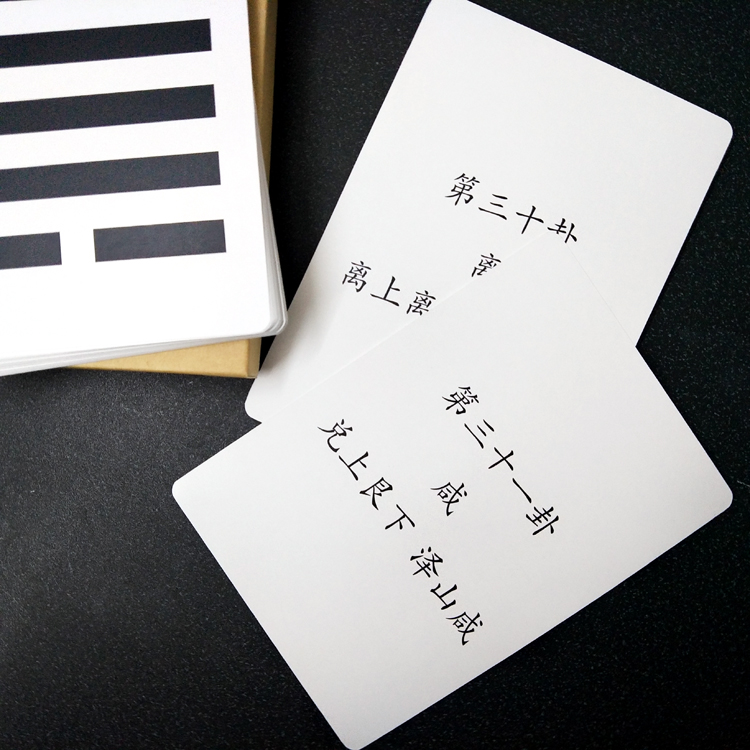 第三十卦
离
离上离
第三十一卦
咸
兑上艮下 泽山咸